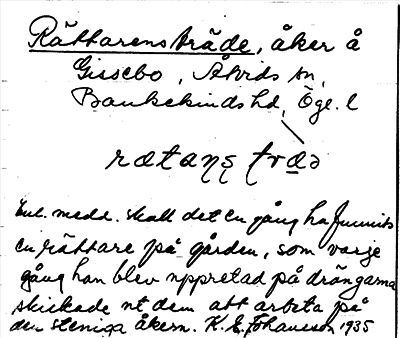 Rättarens träde, åker å
Gissebo, Åtvids sn,
Bankekinds hd, Ögl. l
rætaṇṣ træ̱ə
Enl. medd. skall det en gång ha funnits
en rättare på gården, som varje
gång han blev uppretad på drängarna
skickade ut dem att arbeta på
den steniga åkern. K. E. Johansson 1935